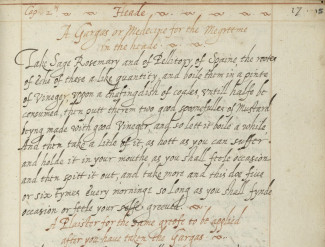 Cap: 2. Heade. 17
A Gargas or Medecine for the Megreeme
in the heade.
Take Sage Rosemary and of Pellitory of Spaine the rootes
of eche of these a like quantity, and boile them in a pinte
of Vineger, uppon a chafingdish of coales untill halfe be
consumed, then putt therein two good spoonefulles of Mustard
being made with good Vineger, and so lett it boile a while
And then take a little of it, as hott as you can suffer
and holde it in your mouthe as you shall feele occasion
and then spitt it out, and take more and this doe five
or six tymes every morninge so long as you shall fynde
occasion or feele your selfe greeved.
A Plaister for the same greefe to be applied
after you have taken the Gargas.